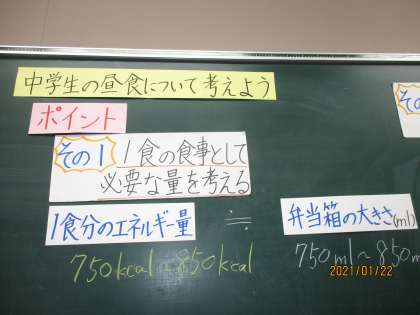 中学生の昼食について考えよう
ポイント
その1
1食の食事として
必要な量を考える
その
1食分のエネルギー量
≒
弁当箱の大きさ(ml)
750kcal~850kcal
750ml~850m
2021/01/22